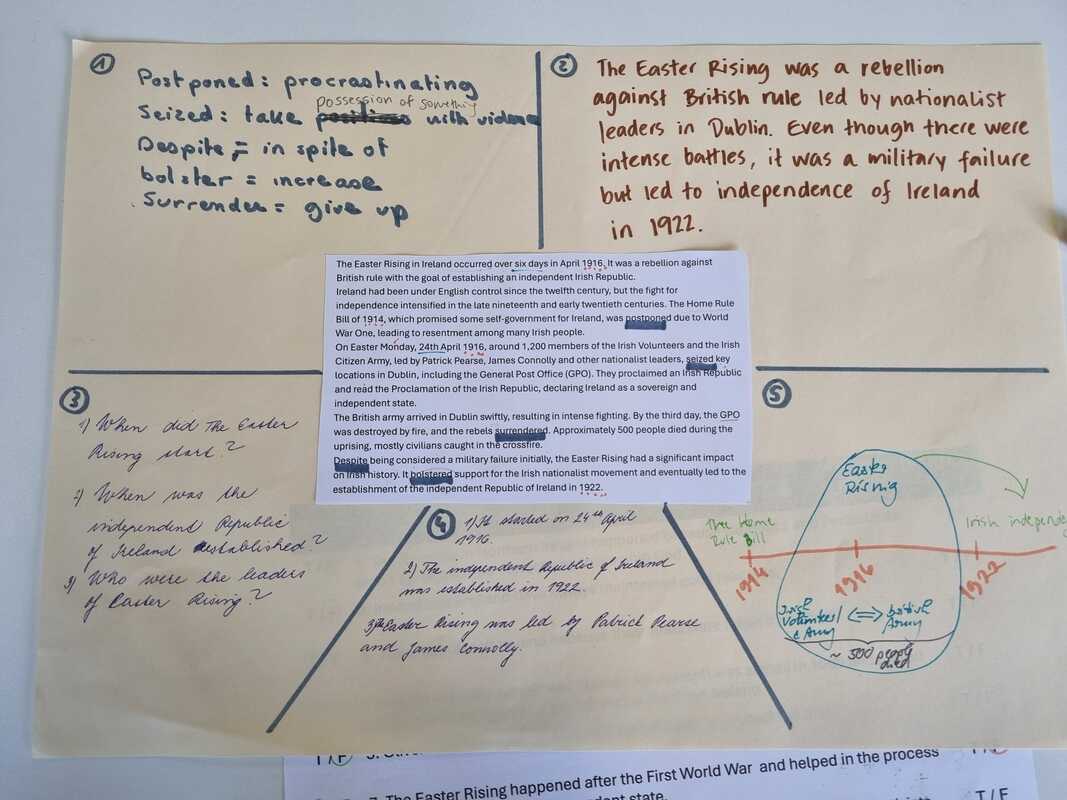 1
Postponed: procrastinating
possession of something
Seized: take with violence
Despite = in spite of
bolster = increase
Surrender = give up
2
The Easter Rising was a rebellion
against British rule led by nationalist
leaders in Dublin. Even though there were
intense battles, it was a military failure
but led to independence of Ireland
in 1922.
The Easter Rising in Ireland occurred over six days in April 1916. It was a rebellion against
British rule with the goal of establishing an independent Irish Republic.
Ireland had been under English control since the twelfth century, but the fight for
independence intensified in the late nineteenth and early twentieth centuries. The Home Rule
Bill of 1914, which promised some self-government for Ireland, was postponed due to World
War One, leading to resentment among many Irish people.
On Easter Monday, 24th April 1916, around 1,200 members of the Irish Volunteers and the Irish
Citizen Army, led by Patrick Pearse, James Connolly and other nationalist leaders, seized key
locations in Dublin, including the General Post Office (GPO). They proclaimed an Irish Republic
and read the Proclamation of the Irish Republic, declaring Ireland as a sovereign and
independent state.
The British army arrived in Dublin swiftly, resulting in intense fighting. By the third day, the GPO
was destroyed by fire, and the rebels surrendered. Approximately 500 people died during the
uprising, mostly civilians caught in the crossfire.
Despite being considered a military failure initially, the Easter Rising had a significant impact
on Irish history. It bolstered support for the Irish nationalist movement and eventually led to the
establishment of the independent Republic of Ireland in 1922.
3
1) When did The Easter
Rising start?
2) When was the
independent Republic
of Ireland established?
3) Who were the leaders
of Easter Rising?
4
1) It started on 24th April
1916.
2) The independent Republic of Ireland
was established in 1922.
3) The Easter Rising was led by Patrick Pearse
and James Connolly.
5
Easter
Rising
The Home
Rule Bill
Irish independency
1914
1916
1922
Irish
Volunteers/
C Army
⇔ British
Army
~ 500 people
died
T / F
The Easter Rising happened after the First World War and helped in the process
T / F
state.